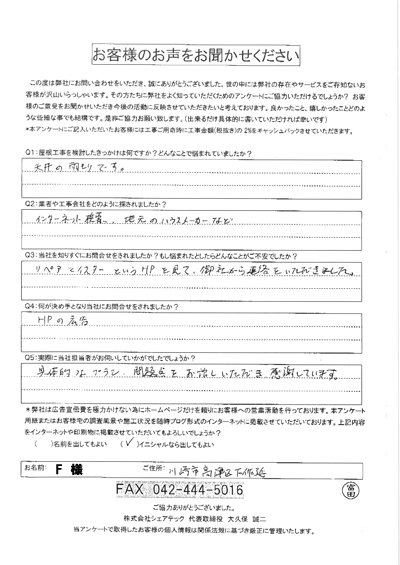 お客様のお声をお聞かせください
この度は弊社にお問い合わせをいただき、誠にありがとうございました。世の中には弊社の存在やサービスをご存知ないお
客様が沢山いらっしゃいます。その方たちに弊社をよく知っていただくためのアンケートにご協力いただけるでしょうか？お客
様のご意見をお聞かせいただき今後の活動に反映させていただきたいと考えております。良かったこと、嬉しかったことどのよ
うな些細な事でも結構です。是非ご協力お願い致します。（出来るだけ具体的に書いていただければ幸いです）
*本アンケートにご記入いただいたお客様には工事ご用命時に工事金額(税抜き)の2%をキャッシュバックさせていただきます。
Q1:屋根工事を検討したきっかけは何ですか？どんなことで悩まれていましたか？
天井の雨もりです。
Q2:業者や工事会社をどのように探されましたか？
インターネット検索、地元のハウスメーカーなど
Q3:当社を知りすぐにお問合せをされましたか？もし悩まれたとしたらどんなことがご不安でしたか？
リペアマイスターというHPを見て、御社から連絡をいただきました。
Q4:何が決め手となり当社にお問合せをされましたか？
HPの広告
Q5:実際に当社担当者がお伺いしていかがでしたでしょうか？
具体的なプラン、問題点をお話しいただき感謝しています。
*弊社は広告宣伝費を極力かけない為にホームページだけを頼りにお客様への営業活動を行っております。本アンケート
用紙またはお客様宅の調査風景や施工状況を随時ブログ形式でインターネットに掲載させていただいております。上記内容
をインターネットや印刷物に掲載させていただいてもよろしいでしょうか？
(　)名前を出してもよい　(✓)イニシャルなら出してもよい
お名前: F 様　ご住所: 川崎市高津区下作延
FAX 042-444-5016
富田
ご協力ありがとうございました。
株式会社シェアテック 代表取締役 大久保 誠二
当アンケートで取得したお客様の個人情報は関係法規に基づき厳正に管理いたします。